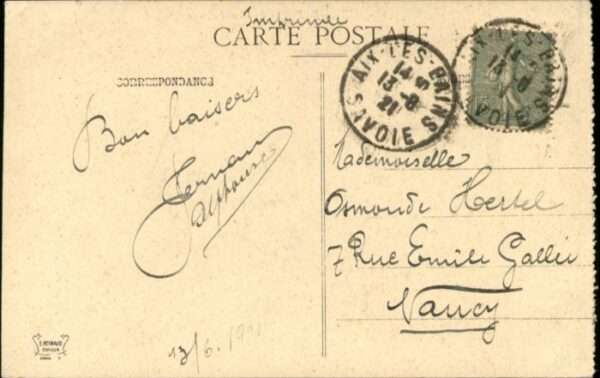 Imprimé
CARTE POSTALE
CORRESPONDANCE
AIX-LES-BAINS
14-5
13-8
21
SAVOIE
AIX-LES-BAINS
14-5
13-8
SAVOIE
Bon baisers
Fernand
Alphonse
Mademoiselle
Osmonde Hertel
7 Rue Emile Gallé
Nancy
13/6